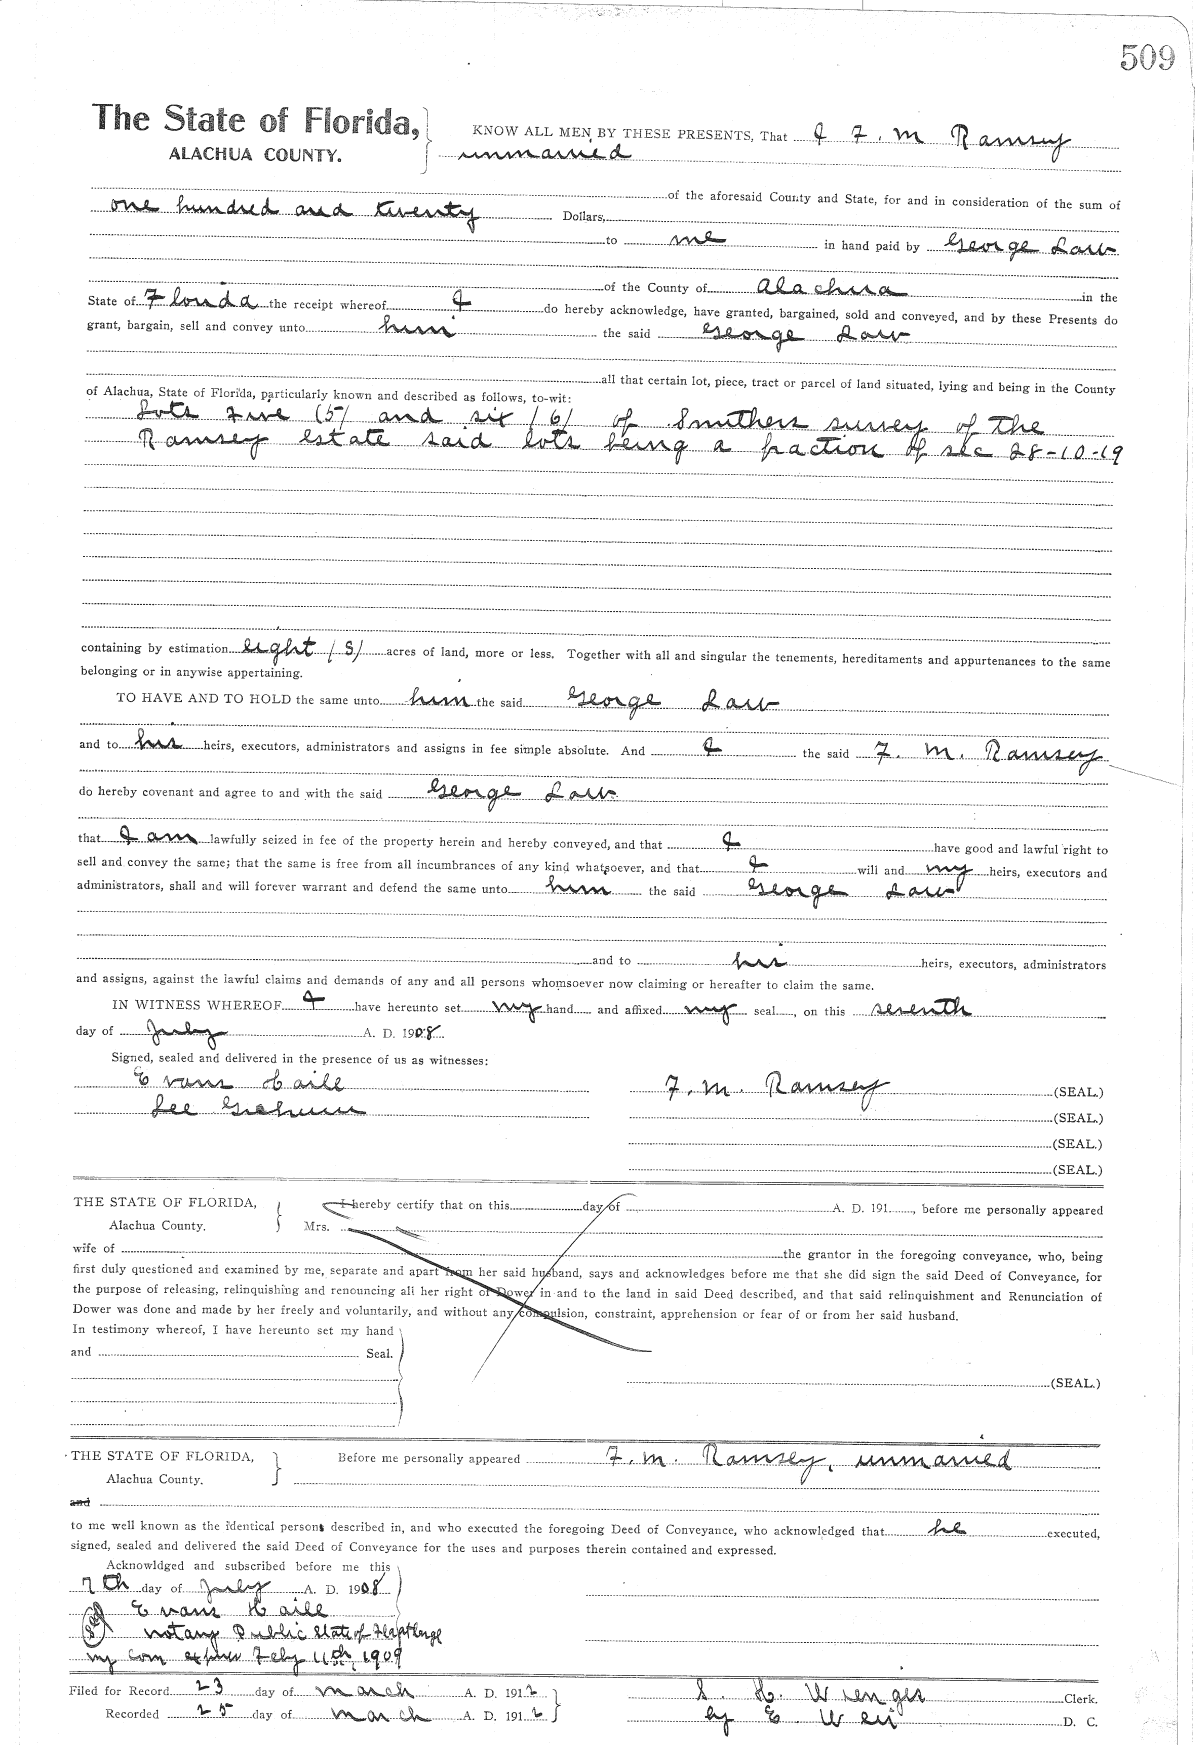 509
The State of Florida,
ALACHUA COUNTY.
KNOW ALL MEN BY THESE PRESENTS, That I F. M Ramsey
unmarried
of the aforesaid County and State, for and in consideration of the sum of
one hundred and twenty Dollars,
to me in hand paid by George Law
of the County of Alachua in the
State of Florida the receipt whereof I do hereby acknowledge, have granted, bargained, sold and conveyed, and by these Presents do
grant, bargain, sell and convey unto him the said George Law
all that certain lot, piece, tract or parcel of land situated, lying and being in the County
of Alachua, State of Florida, particularly known and described as follows, to-wit:
Lots Five (5) and six (6) of Smithers survey of the
Ramsey estate said lots being a fraction of sec 28-10-19
containing by estimation eight (8) acres of land, more or less. Together with all and singular the tenements, hereditaments and appurtenances to the same
belonging or in anywise appertaining.
TO HAVE AND TO HOLD the same unto him the said George Law
and to his heirs, executors, administrators and assigns in fee simple absolute. And I the said F. M. Ramsey
do hereby covenant and agree to and with the said George Law
that I am lawfully seized in fee of the property herein and hereby conveyed, and that I have good and lawful right to
sell and convey the same; that the same is free from all incumbrances of any kind whatsoever, and that I will and my heirs, executors and
administrators, shall and will forever warrant and defend the same unto him the said George Law
and to his heirs, executors, administrators
and assigns, against the lawful claims and demands of any and all persons whomsoever now claiming or hereafter to claim the same.
IN WITNESS WHEREOF I have hereunto set my hand and affixed my seal, on this seventh
day of July A. D. 1908
Signed, sealed and delivered in the presence of us as witnesses:
Evans Haile F. M. Ramsey (SEAL.)
Lee Graham (SEAL.)
(SEAL.)
(SEAL.)
THE STATE OF FLORIDA,
Alachua County.
I hereby certify that on this day of A. D. 191 , before me personally appeared
Mrs.
wife of the grantor in the foregoing conveyance, who, being
first duly questioned and examined by me, separate and apart from her said husband, says and acknowledges before me that she did sign the said Deed of Conveyance, for
the purpose of releasing, relinquishing and renouncing all her right of Dower in and to the land in said Deed described, and that said relinquishment and Renunciation of
Dower was done and made by her freely and voluntarily, and without any compulsion, constraint, apprehension or fear of or from her said husband.
In testimony whereof, I have hereunto set my hand
and Seal.
(SEAL.)
THE STATE OF FLORIDA,
Alachua County.
Before me personally appeared F. M. Ramsey, unmarried
and
to me well known as the identical persons described in, and who executed the foregoing Deed of Conveyance, who acknowledged that he executed,
signed, sealed and delivered the said Deed of Conveyance for the uses and purposes therein contained and expressed.
Acknowldged and subscribed before me this
7th day of July A. D. 1908
Evans Haile
Seal Notary Public State of Fla at large
my com expires Feby 11th, 1909
Filed for Record 23 day of March A. D. 1912 S. H. Wienges Clerk.
Recorded 25 day of March A. D. 1912 by E. D. C.